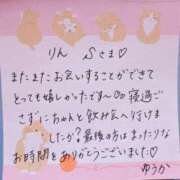 りん Sさま♡
またまたお会いすることができて
とっても嬉しかったです〜○○ 寝過ご
さずに ちゃんと飲み会へ行けま
したか？最後の方はまったりな
お時間をありがとうございました♡
ゆうか